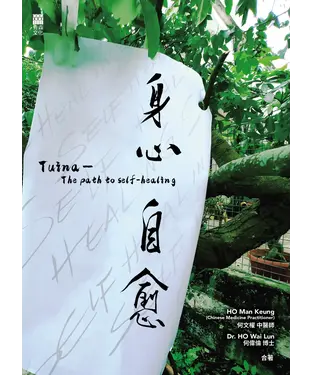 身心自愈
Tuina—
The path to self-healing
HO Man Keung
(Chinese Medicine Practitioner)
何文權 中醫師
Dr. HO Wai Lun
何偉倫 博士
合著